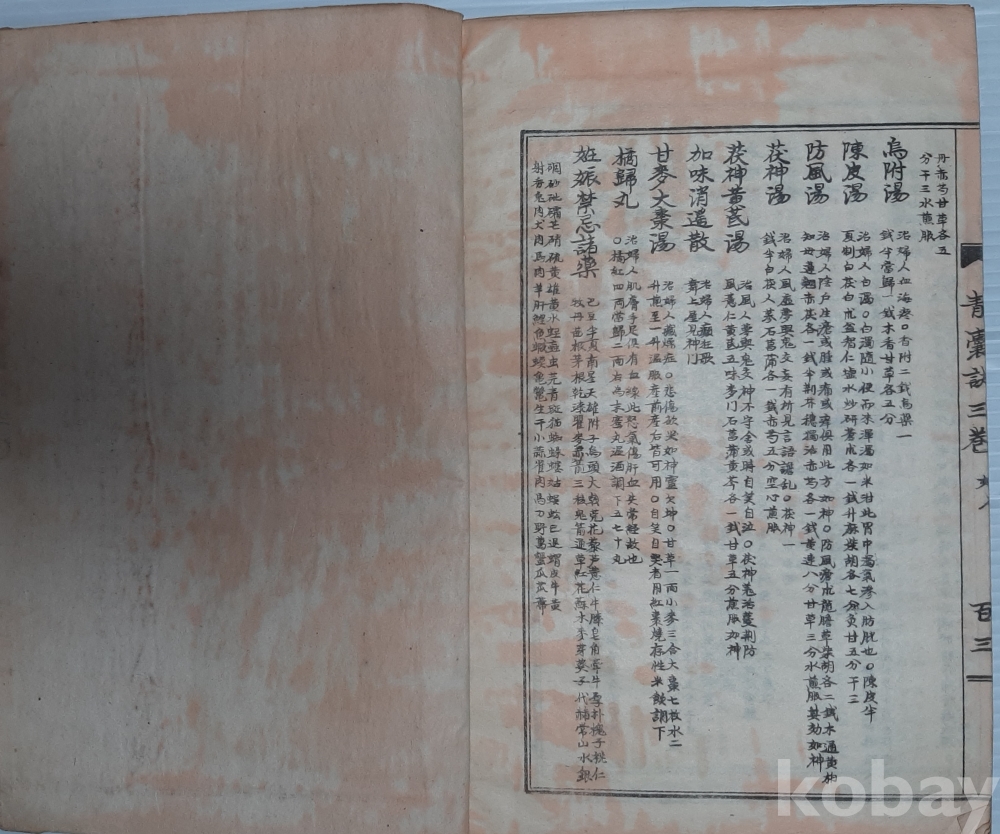 丹赤芍甘草各五
分干三水煎服
烏附湯
治婦人血海○香附二戔烏藥一
戔半當歸一戔木香甘草各五分
陳皮湯
治婦人白濁○白濁隨小便而來渾濁如米泔此胃中濁氣滲入膀胱也○陳皮半
夏制白茯白朮益智仁塩水炒研蒼朮各一戔升麻柴胡各七分灸甘五分干三
防風湯
治婦人陰戶生瘡或腫或痛或痒俱用此方如神○防風蒼朮龍膽草柴胡各二戔木通黃栢
知母連翹赤茯各一戔半荊芥穗獨活赤芍各一戔黃連八分甘草三分水煎服甚効如神
茯神湯
治婦人風虛夢與鬼交妄有所見言語謬乱○茯神一
戔半白茯人參石菖蒲各一戔赤芍五分空心煎服
茯神黃芪湯
治風人夢與鬼交神不守舍或時自笑自泣○茯神羌活蔓荊防
風薏仁黃芪五味麥門石菖蒲黃芩各一戔甘草五分煎服如神
加味消遙散
治婦人癲狂歌
舞上屋見神門
甘麥大棗湯
治婦人癲燥症○悲傷欲哭如神靈欠呻○甘草一兩小麥三合大棗七枚水二
升煎至一升溫服産前産后皆可用○自笑自哭者用紅棗燒存性米飮調下
橘歸丸
治婦人肌膚手足俱有血線此怒氣傷肝血失常經故也
○橘紅四兩當歸二兩右為末蜜丸溫酒調下五七十丸
妊娠禁忌諸藥
巴豆半夏南星天雄附子烏頭大戟芫花藜芦薏仁牛膝皂角牽牛厚朴槐子桃仁
牧丹茜根茅根乾漆瞿麥三稜鬼箭通草紅花蘇木麥芽代赭常山水銀
硇砂砒礵芒硝硫黃雄黃水蛭虻虫芫青斑猫蜘蛛螻蛄蜈蚣巳退蝟皮牛黃
射香兎肉犬肉馬肉羊肝鯉魚龜鱉生干小蒜雀肉馬刀野葛蟹瓜瓜蒂
青囊訣 三卷
百三
kobay